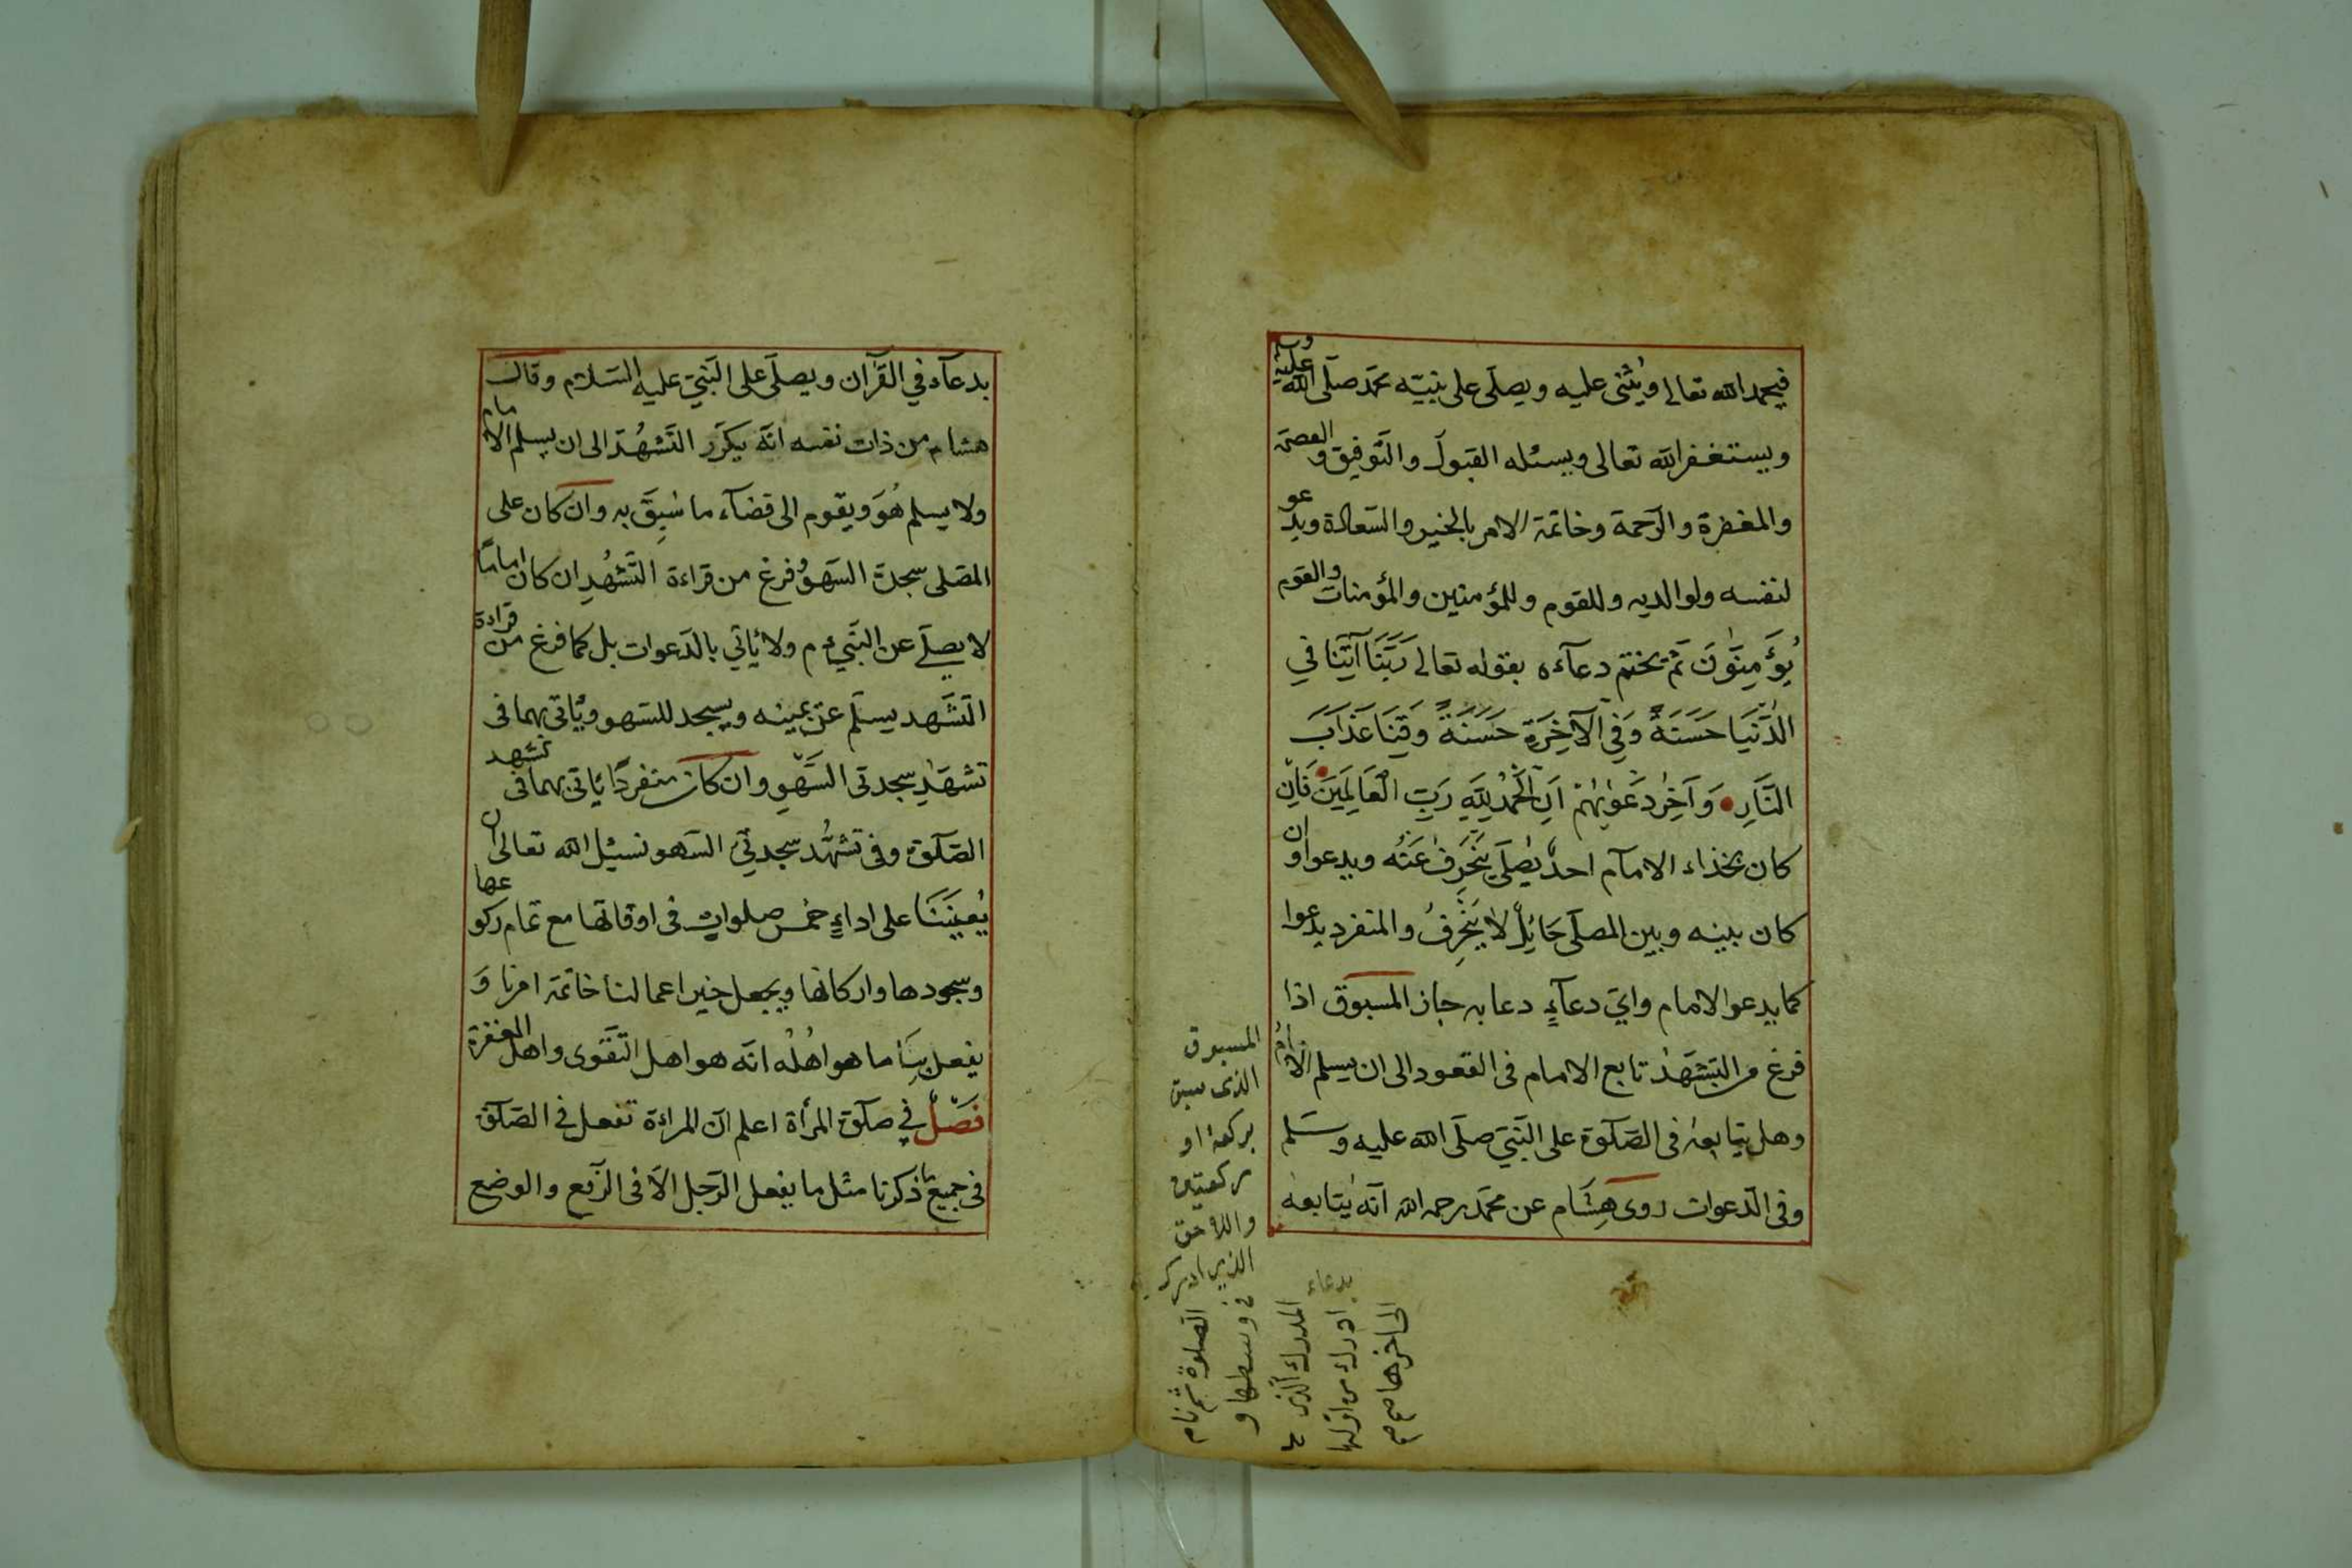 فيحمد الله تعالى ويثنى عليه ويصلى على نبيّه محمّد صلّى الله عليه وسلم
ويستغفر الله تعالى ويسئله القبول والتّوفيق والعصمة
والمغفرة والرّحمة وخاتمة الامر بالخير والسّعادة ويدعو
لنفسه ولوالديه وللقوم وللمؤمنين والمؤمنات والقوم
يُؤَمِنّوُنَ ثمّ يختم دعآءه بقوله تعالى رَبَّنَا آتِنَا فِي
الدُّنْيَا حَسَنَةً وَفِي الْآخِرَةِ حَسَنَةً وَقِنَا عَذَابَ
النَّارِ وَآخِرُ دَعْوٰيهُمْ اَنِ الْحَمْدُ لِلّٰهِ رَبِّ الْعَالَمِينَ فَاِنْ
كان بحذاء الامآم احدٌ يُصلّى يَنْحَرِفُ عَنْهُ ويدعوا وان
كان بينه وبين المصلّى حَائِلٌ لا يَنْحَرِفُ والمنفرد يدعوا
كما يدعو الامام وايّ دعآءٍ دعا به جاز المسبوق اذا
فرغ من التّشهّد تابع الامام فى القعود الى ان يسلم الامام
وهل يتابعه فى الصّلوة على النّبيّ صلّى الله عليه وسلّم
وفى الدّعوات روى هِشَام عن محمّد رحمه الله انّه يتابعه
المسبوق
الذى سبق
بركعة او
ركعتين
واللاحق
الذى ادرك
فى وسطها و
الصلوة ثم نام
المدرك الذى
ادرك من اولها
الى اخرها
بدعاء
بدعآء في القرآن ويصلّى على النّبيّ عليه السّلام وقال
هشام من ذات نفسه انّه يكرّر التّشهُدَ الى ان يسلم الامام
ولا يسلم هُوَ ويقوم الى قضآء ما سُبِقَ به وان كان على
المصلى سجدة السّهو فرغ من قراءة التّشهُدِ ان كان اماما
لا يصلّى عن النّبيّ م ولا يأتي بالدّعوات بل كما فرغ من قراءة
التّشهد يسلّم عن يمينه ويسجد للسّهو ويأتى بهما فى
تشهدِ سجدتى السّهو وان كان منفردًا يأتى بهما فى تشهد
الصّلوة وفى تشهُّد سجدتيِ السّهو نسئل الله تعالى ان
يُعِينَنَا على اداءِ خمس صلوات فى اوقاتها مع تمام ركوعها
وسجودها واركانها ويجعل خير اعمالنا خاتمة امرنا وَ
يفعل بِنَا ما هو اهْلُه انّه هو اهل التّقوى واهل المغفرة
فَصْلٌ في صلوة المرأة اعلم انّ المراءة تفعل في الصّلوة
فى جميع ما ذكرنا مثل ما يفعل الرّجل الّا فى الرّفع والوضع